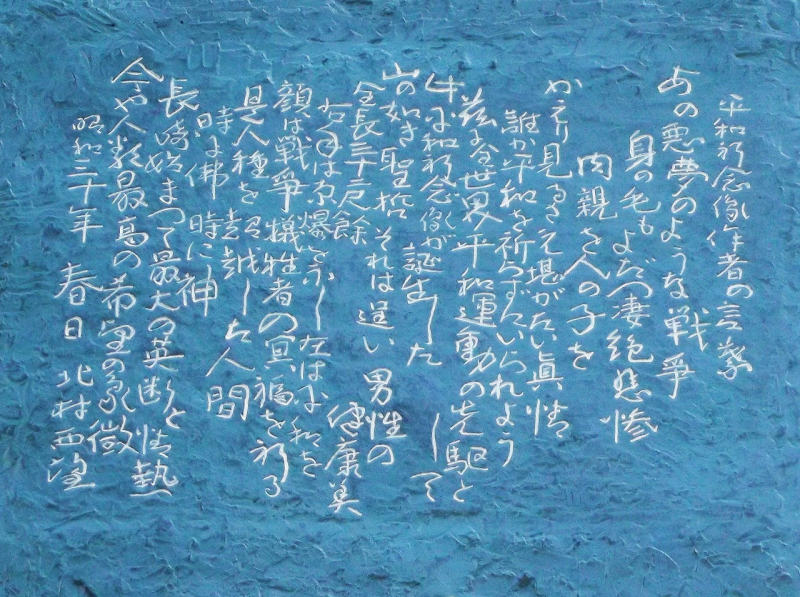 平和祈念像作者の言葉
あの悪夢のような戦争
身の毛もよだつ凄絶悲惨
肉親を人の子を
かえり見るさえ堪がたい真情
誰か平和を祈らずにいられよう
茲に全世界平和運動の先駆として
此平和祈念像が誕生した
山の如き聖哲それは逞い男性の健康美
全長三十二尺餘
右手は原爆を示し左は平和を
顔は戦争犠牲者の冥福を祈る
是人種を超越した人間
時に佛 時に神
長崎始まつて最大の英断と情熱
今や人類最高の希望の象徴
昭和三十年 春日 北村西望